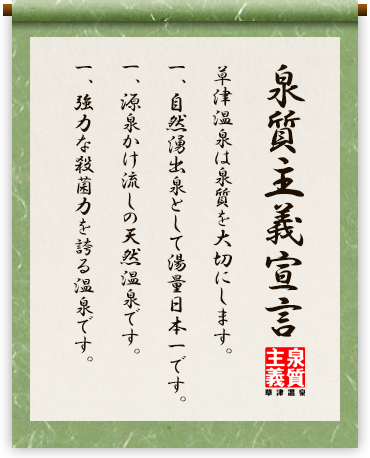 泉質主義宣言
泉質
主義
草津温泉
草津温泉は泉質を大切にします。
一、自然湧出泉として湯量日本一です。
一、源泉かけ流しの天然温泉です。
一、強力な殺菌力を誇る温泉です。